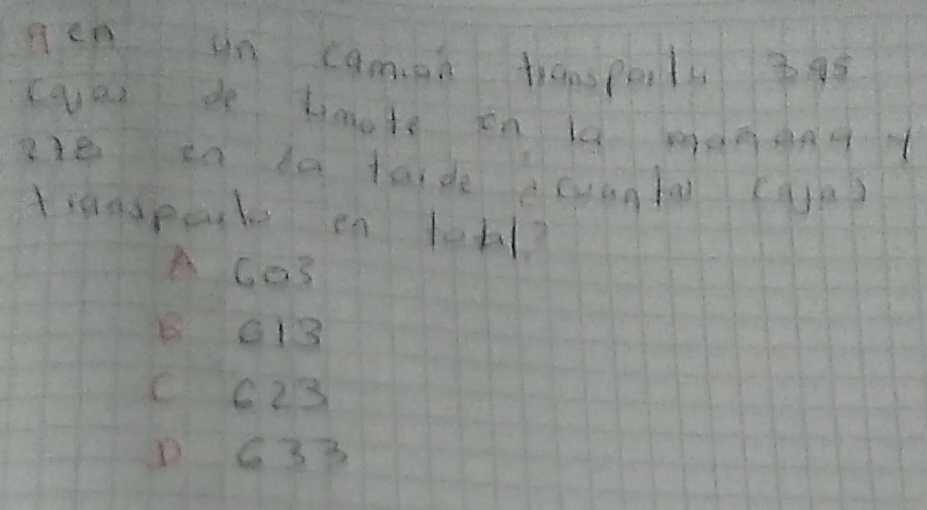 A en un camion transporta 345
cajas de tomate en la mañana y
278 en la tarde ¿cuantas cajas
transporto en total?
A 603
B 613
C 623
D 633